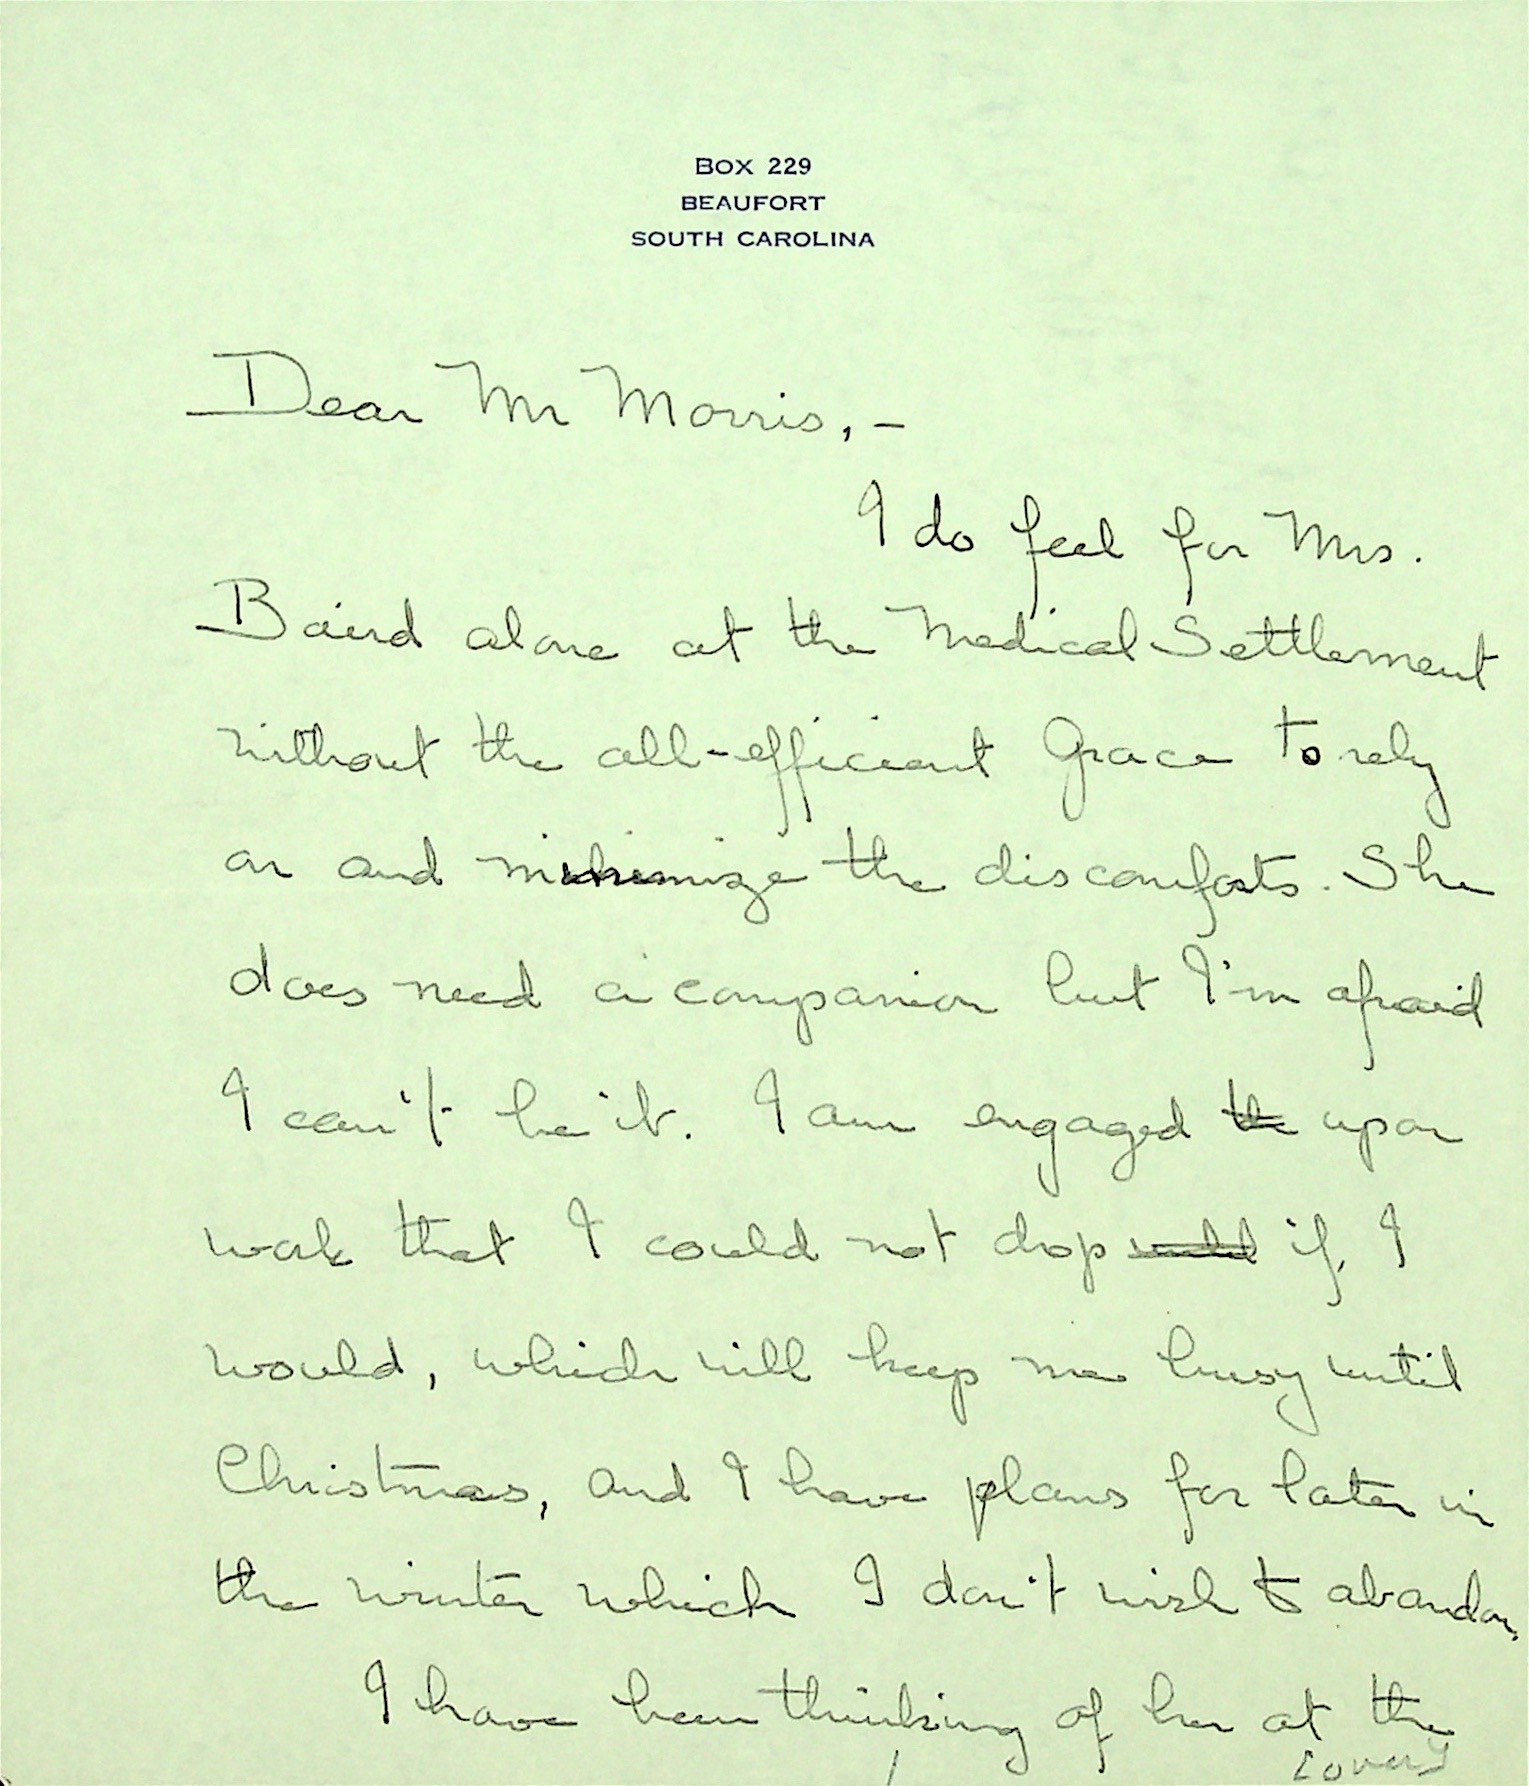 BOX 229
BEAUFORT
SOUTH CAROLINA
Dear Mr Morris, -
I do feel for Mrs.
Baird alone at the Medical Settlement
without the all-efficient Grace to rely
on and minimize the discomforts. She
does need a companion but I'm afraid
I can't be it. I am engaged the upon
work that I could not drop until if I
would, which will keep me busy until
Christmas, and I have plans for later in
the winter which I don't wish to abandon.
I have been thinking of her at the
[over]